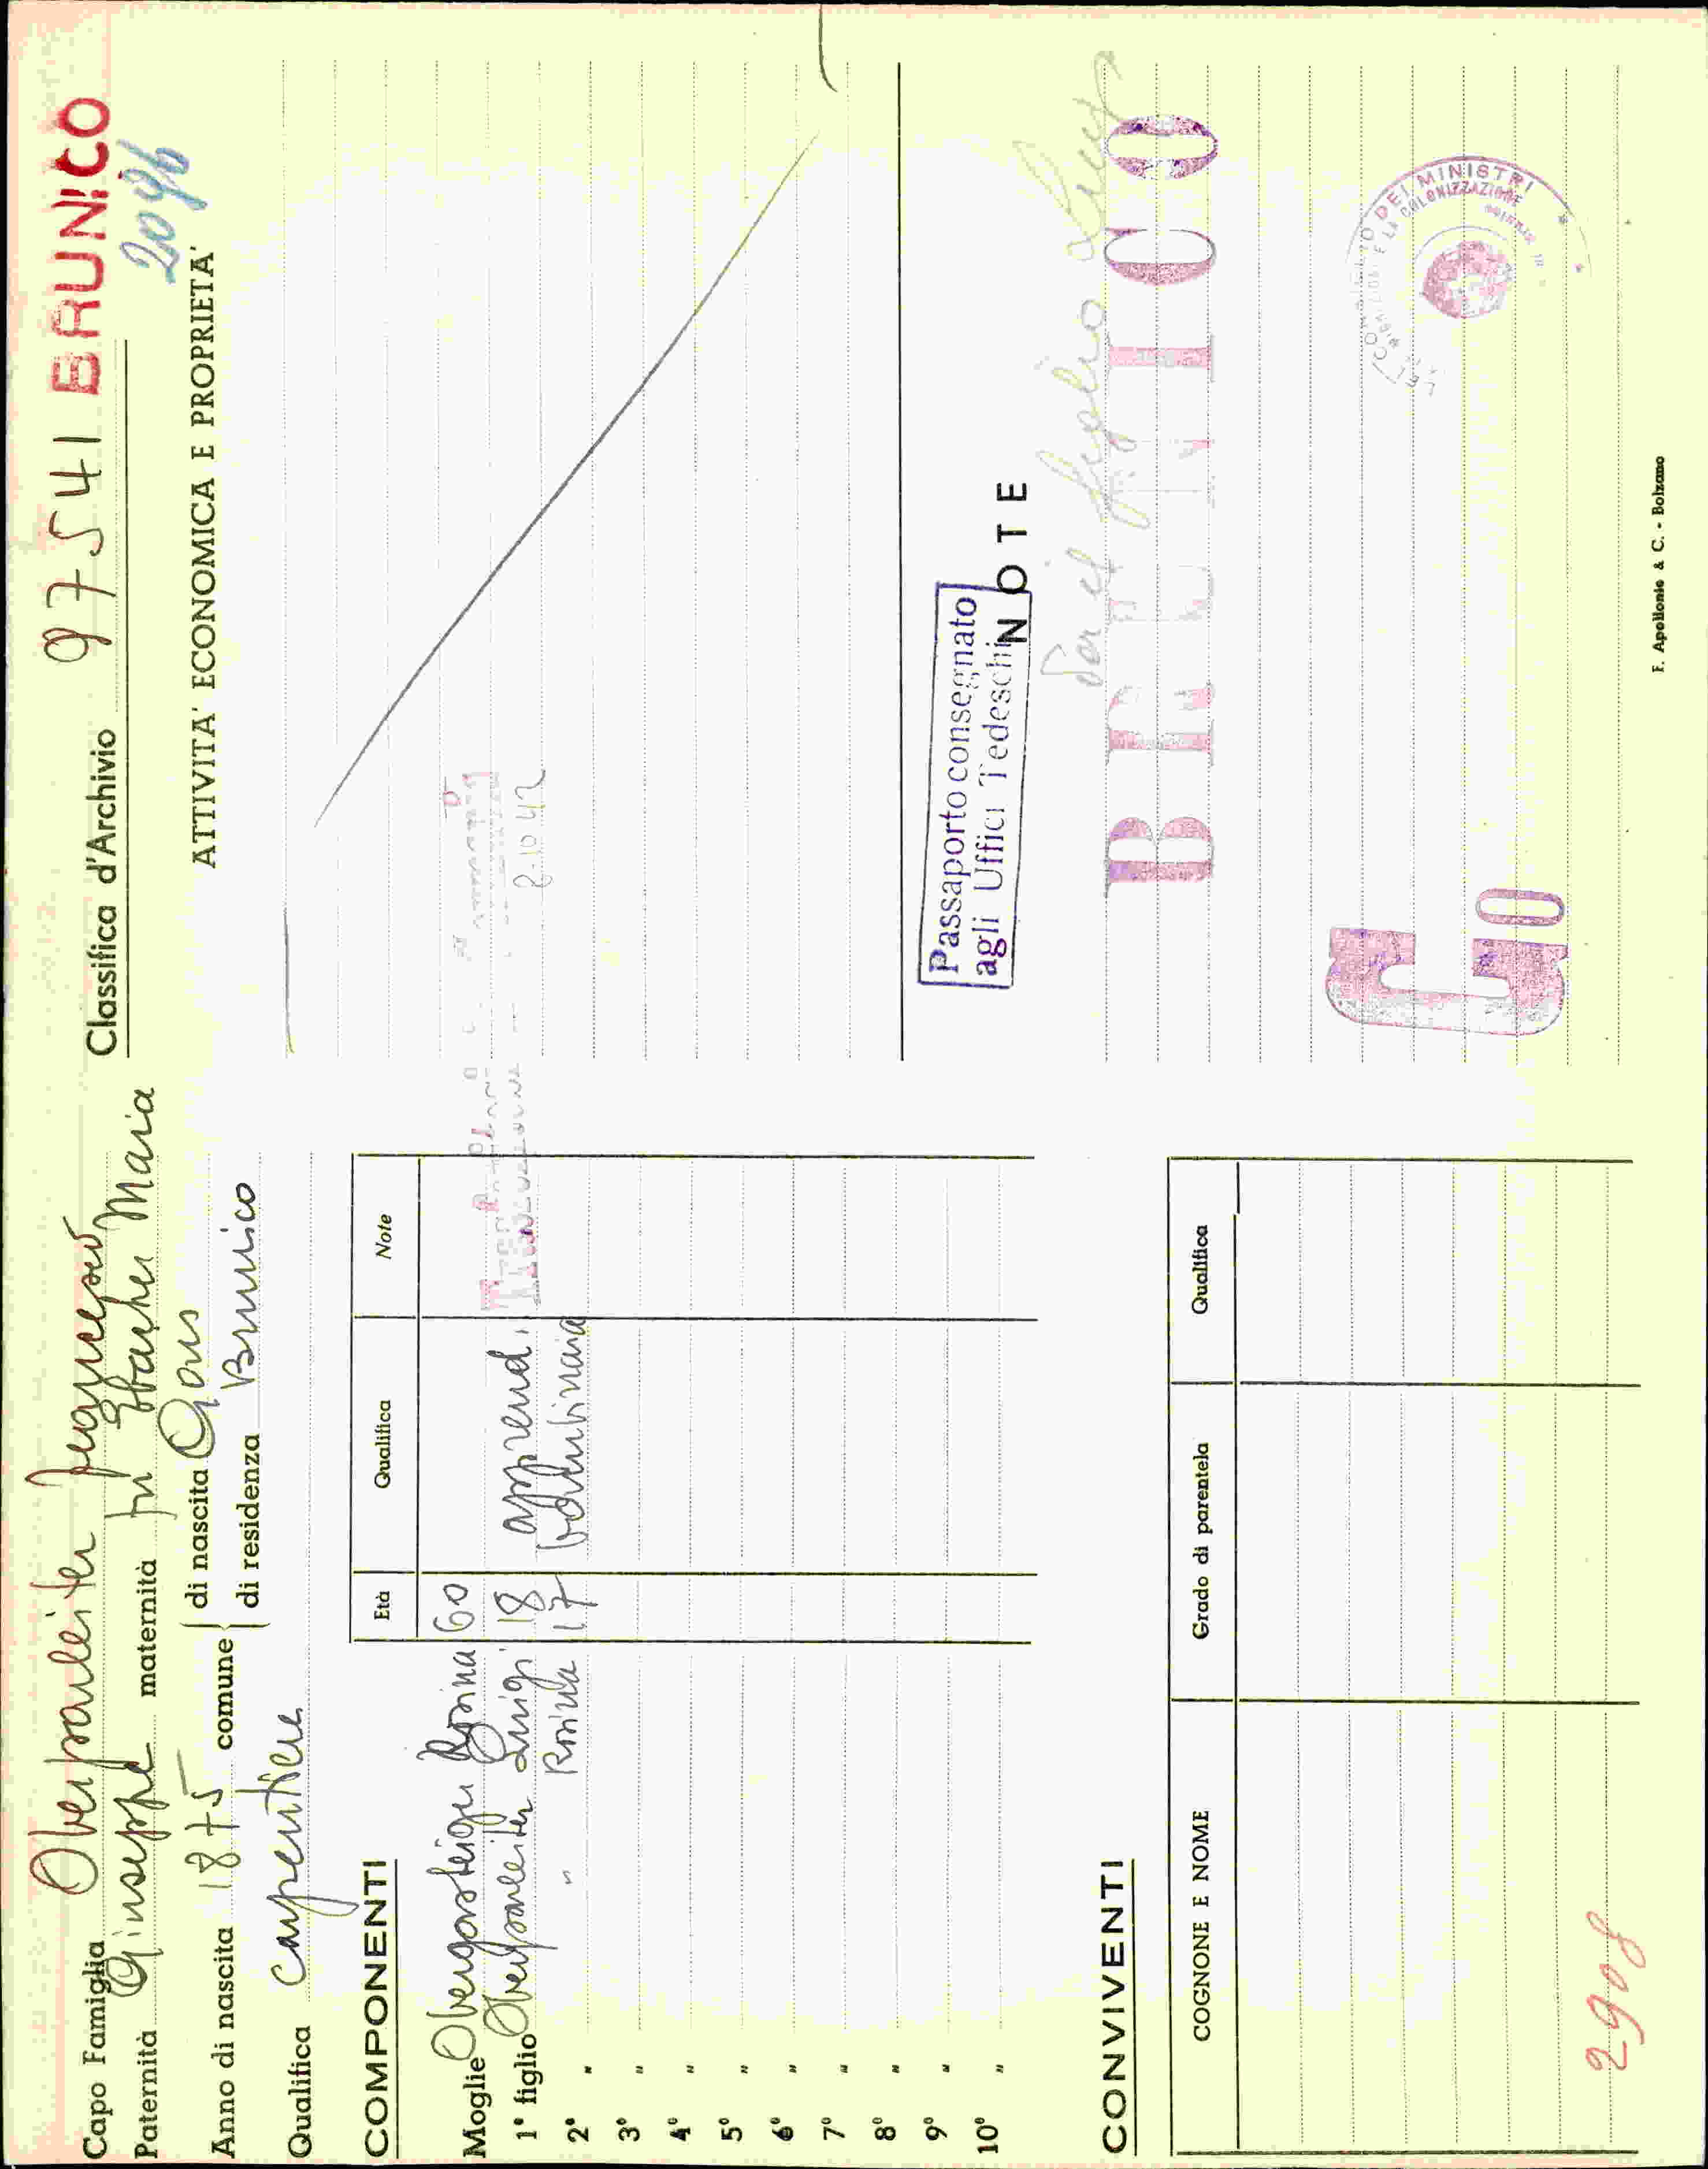 Capo Famiglia Oberparleiter Francesco
Paternità Giuseppe maternità fu Maria
Anno di nascita 1875 comune di nascita Gais
di residenza Brunico
Qualifica Carpentiere
COMPONENTI
Età Qualifica Note
Moglie Obergasteiger Rosina 60
1° figlio Oberparleiter Luigi 18 apprend.
2° " " Rosina 17 bambinaia
3° "
4° "
5° "
6° "
7° "
8° "
9° "
10° "
CONVIVENTI
COGNONE E NOME Grado di parentela Qualifica
2908
Classifica d'Archivio 97541 BRUNICO
2096
ATTIVITA' ECONOMICA E PROPRIETA'
8.10.42
Passaporto consegnato
agli Uffici Tedeschi
NOTE
Per il figlio Luigi
BRUNICO
Go
DEI MINISTRI
COLONIZZAZIONE
F. Apollonio & C. - Bolzano